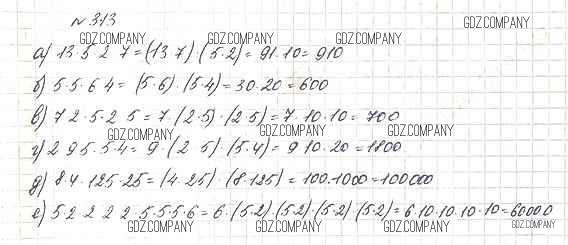 № 313
GDZ.COMPANY
GDZ.COMPANY GDZ.COMPANY GDZ.COMPANY
а) 13·5·2·7=(13·7)·(5·2)=91·10=910
б) 5·5·6·4=(5·6)·(5·4)=30·20=600
в) 7·2·5·2·5=7·(2·5)·(2·5)=7·10·10=700
GDZ.COMPANY GDZ.COMPANY GDZ.COMPANY
г) 2·9·5·5·4=9·(2·5)·(5·4)=9·10·20=1800
д) 8·4·125·25=(4·25)·(8·125)=100·1000=100000
е) 5·2·2·2·2·5·5·5·6=6·(5·2)·(5·2)·(5·2)·(5·2)=6·10·10·10·10=60000
GDZ.COMPANY GDZ.COMPANY GDZ.COMPANY